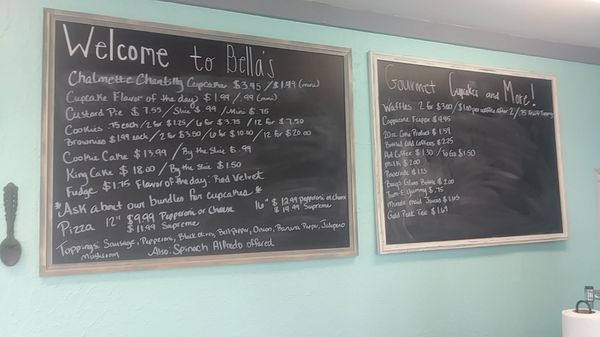 Welcome to Bella's
Chalmette Chantilly Cupcakes $3.95 / $1.99 (mini)
Cupcake Flavor of the day $1.99 / .99 (mini)
Custard Pie $7.55 / Slice $.99 / Mini $.75
Cookies .75 each / 2 for $1.25 / 6 for $3.75 / 12 for $7.50
Brownies $1.99 each / 2 for $3.50 / 6 for $10.00 / 12 for $20.00
Cookie Cake $13.99 / By the Slice $.99
King Cake $18.00 / By the Slice $1.50
Fudge $1.75 Flavor of the day: Red Velvet
*Ask about our bundles for cupcakes*
Pizza 12" $9.99 Pepperoni or Cheese 16" $12.99 Pepperoni or cheese
$11.99 Supreme $14.99 Supreme
Toppings: Sausage, Pepperoni, Black Olives, Bell Pepper, Onion, Banana Pepper, Jalapeno
Mushroom Also: Spinach Alfredo offered
Gourmet Cupcakes and More!
Waffles 2 for $3.00 / $1.00 per waffle after 2 / .75
Cappuccino Freeze $4.95
20oz. Coke Product $1.59
Bottled Cold coffees $2.25
Hot Coffee $1.30 / To Go $1.50
milk $2.00
Powerade $1.25
Barq's Glass Bottle $2.00
Tum-E-Yummy $.75
Minute maid Juices $1.65
Gold Peak Tea $1.69